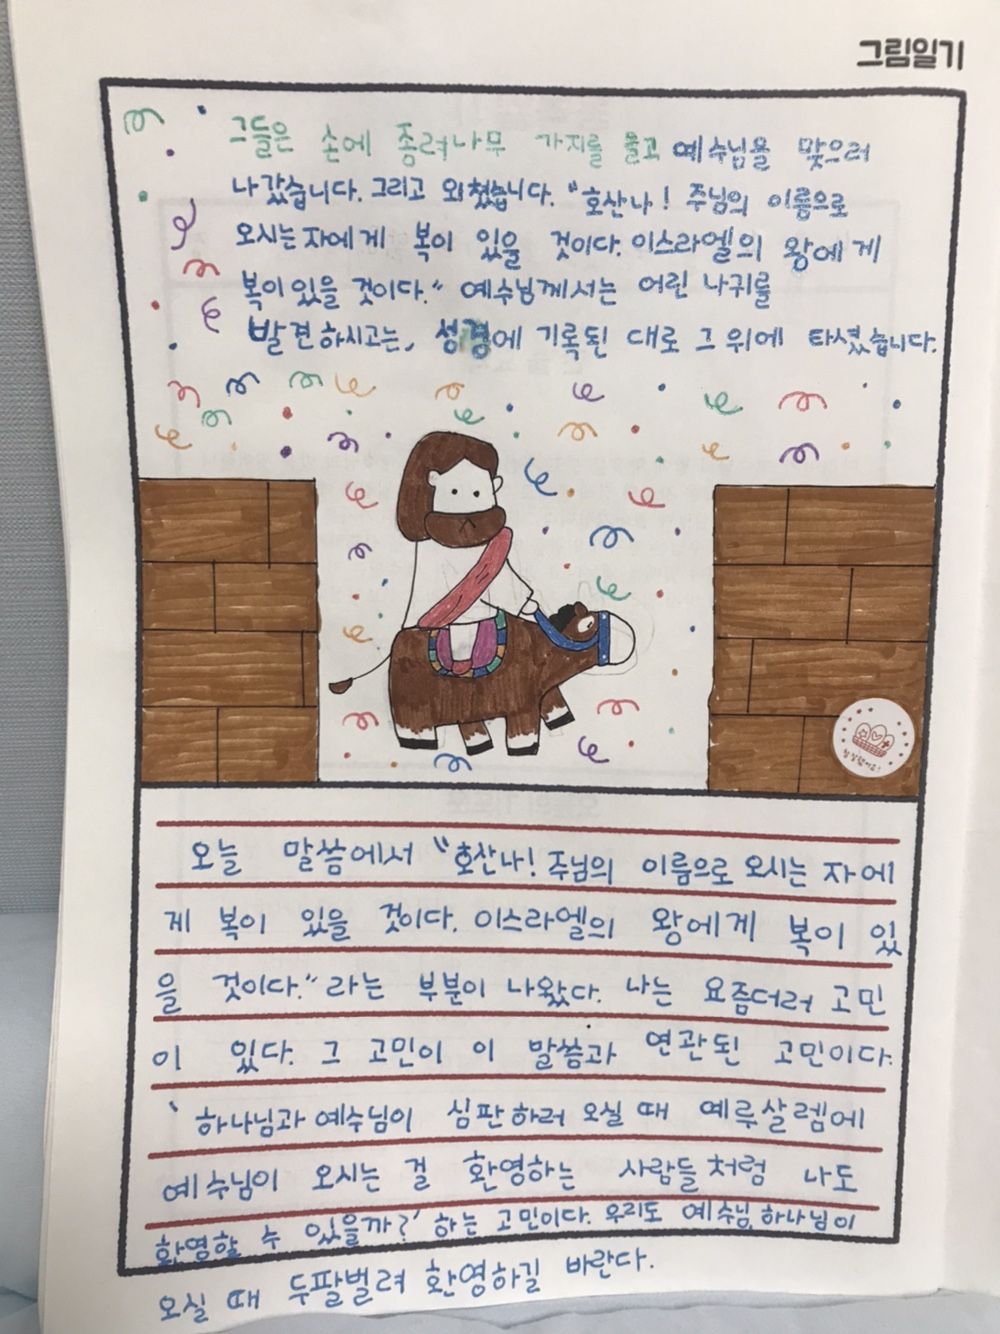 그림일기
그들은 손에 종려나무 가지를 들고 예수님을 맞으러
나갔습니다. 그리고 외쳤습니다. "호산나! 주님의 이름으로
오시는 자에게 복이 있을 것이다. 이스라엘의 왕에게
복이 있을 것이다." 예수님께서는 어린 나귀를
발견하시고는, 성경에 기록된 대로 그 위에 타셨습니다.
참 잘했어요!
오늘 말씀에서 "호산나! 주님의 이름으로 오시는 자에
게 복이 있을 것이다. 이스라엘의 왕에게 복이 있
을 것이다." 라는 부분이 나왔다. 나는 요즘더러 고민
이 있다. 그 고민이 이 말씀과 연관된 고민이다.
'하나님과 예수님이 심판하러 오실 때 예루살렘에
예수님이 오시는 걸 환영하는 사람들처럼 나도
환영할 수 있을까?' 하는 고민이다. 우리도 예수님, 하나님이
오실 때 두팔벌려 환영하길 바란다.